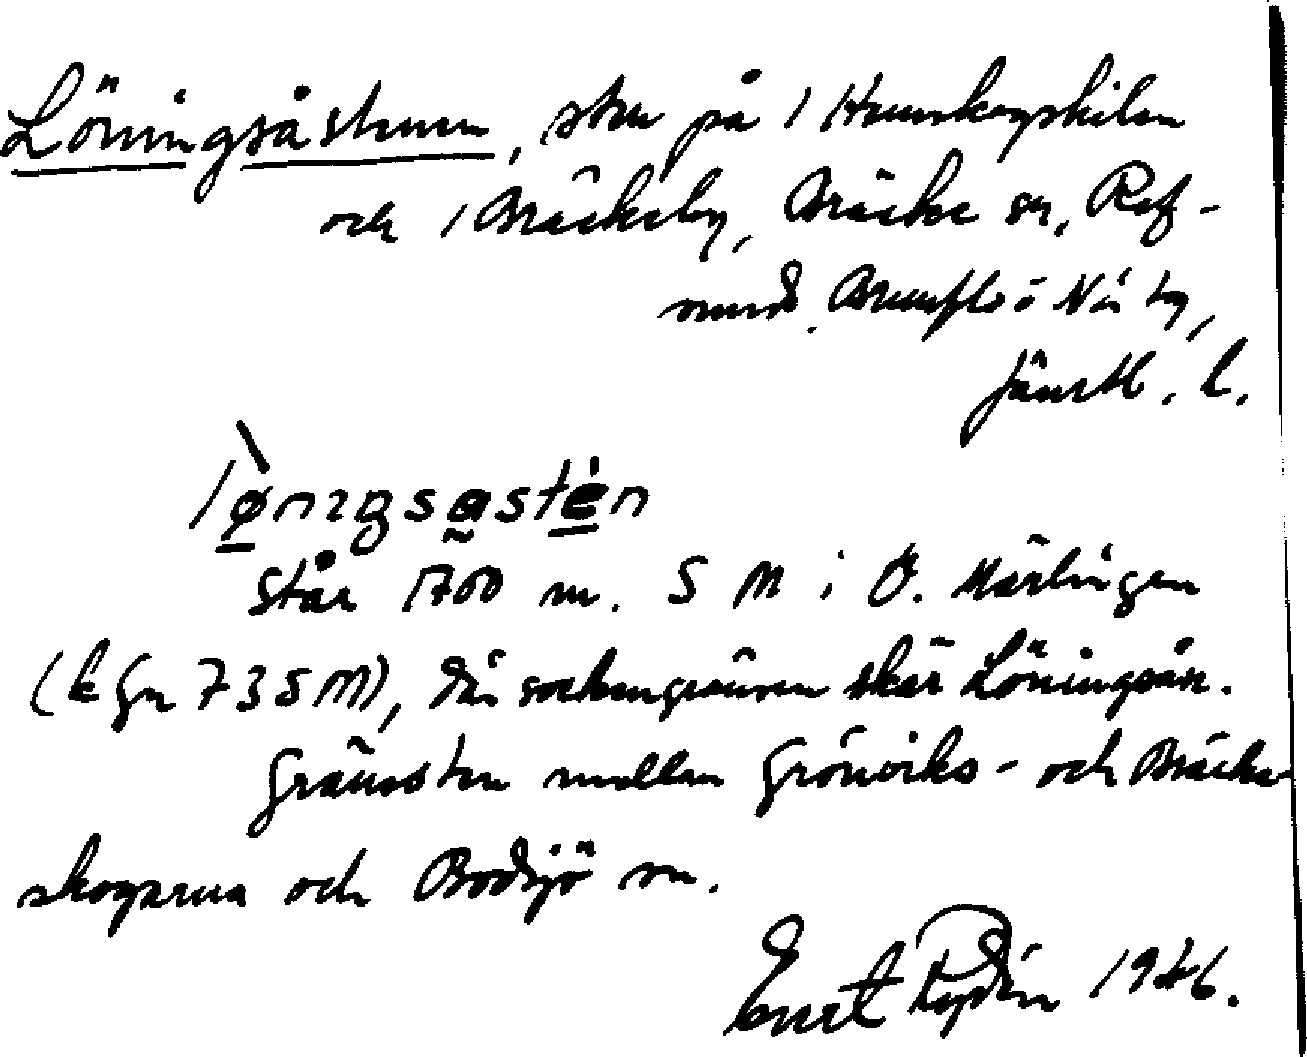 Löningsåstenen, sten på 1 Krumkopskilen
och 1 Bräckeby, Bräcke sn, Ref-
sund. Brunflo o Näs tg,
Jämtl. l.
lø̀nıgsasten
Står 1700 m. S M i Ö. Märlingen
(k fr 735 M), där sockengränsen skär Löningsån.
Gränssten mellan Grönviks- och Bräcke-
skogarna och Bodsjö sn.
1946.